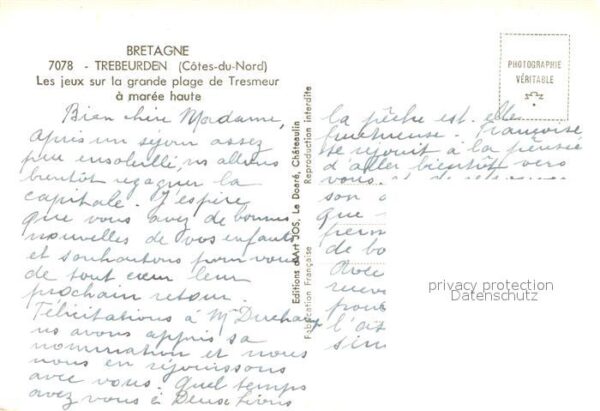 BRETAGNE
7078 - TREBEURDEN (Côtes-du-Nord)
Les jeux sur la grande plage de Tresmeur
à marée haute
Bien chère Madame,
Après un séjour assez
peu ensoleillé, ns allons
bientôt regagner la
capitale. J'espère
que vous avez de bonnes
nouvelles de vos enfants
et souhaitons pour vous
de tout cœur leur
prochain retour.
Félicitations à Mr
ns avons appris sa
nomination et nous
nous en réjouissons
avec vous. Quel temps
avez vous à
Editions d'Art JOS, Le Doaré, Châteaulin
Reproduction interdite
Fabrication Française
PHOTOGRAPHIE
VÉRITABLE
la pêche est-elle
fructueuse. Françoise
se réjouit à la pensée
d'aller bientôt vers
vous
son
que
de bo
Avec
l'as
privacy protection
Datenschutz